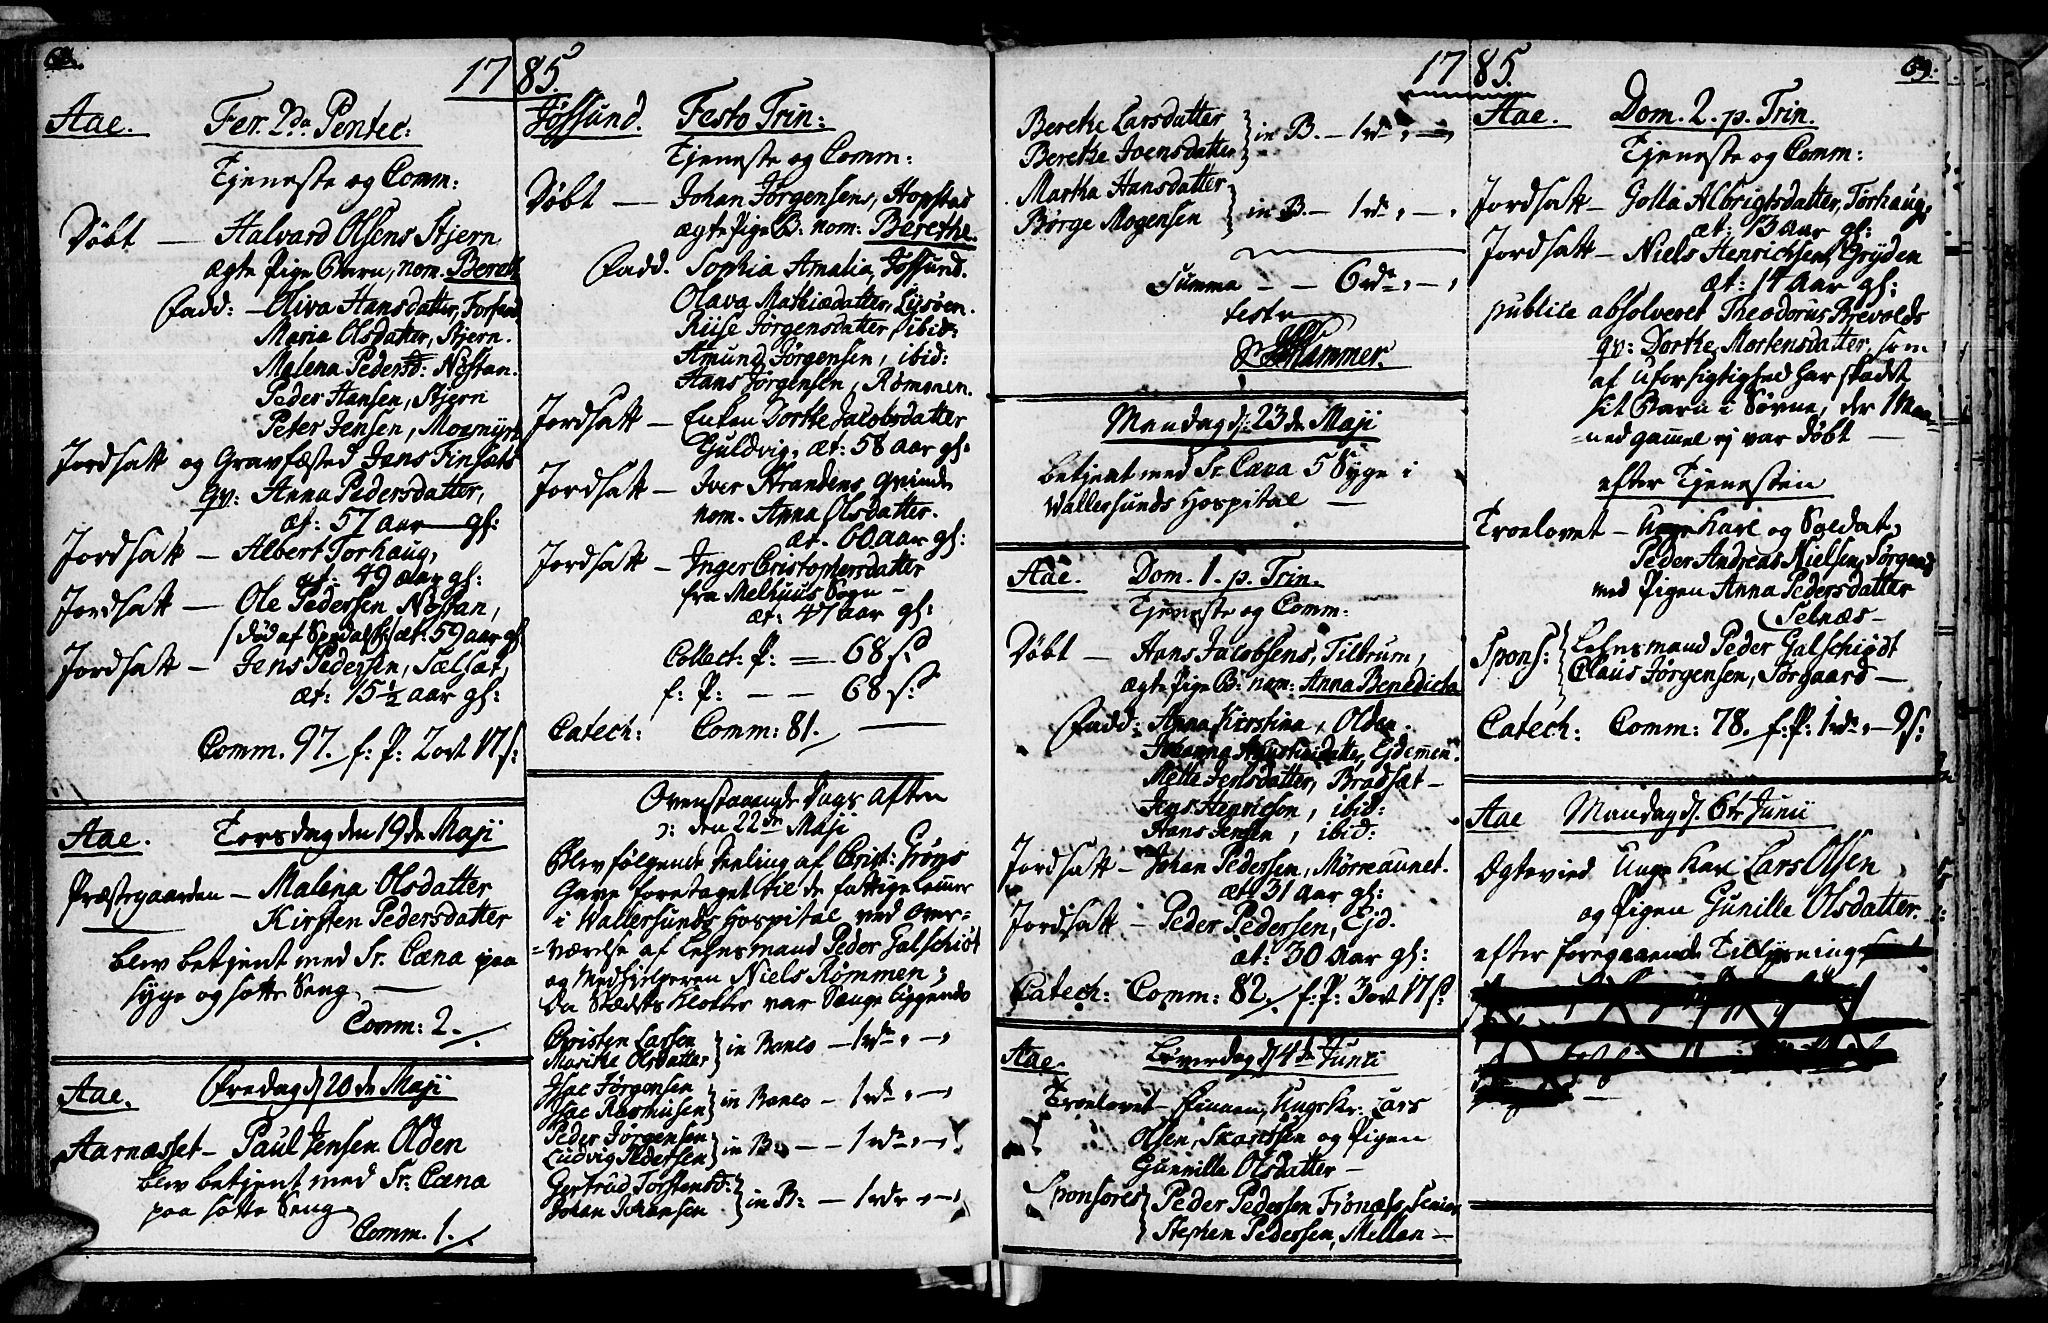 68.
1785.
Aae. Fer. 2da Pentec:
Tjeneste og Comm:
Døbt — Halvard Olsens Stjern
ægte Pige Barn, nom. Bereth
Fadd: — Oliva Hansdatter, Forsand
Maria Olsdatter, Stjern.
Malena Pedersd: Nøstan.
Peder Hansen, Stjern
Peter Jensen, Mosmyre
Jordsatt og Gravfæsted Jens Finsets
qv: Anna Pedersdatter,
æt: 57 aar gl:
Jordsatt — Albert Torhaug,
æt: 49 aar gl:
Jordsatt — Ole Pedersen Nøstan,
(død af Spedalskh:) æt: 59 aar gl
Jordsatt — Jens Pedersen, Sælsæt,
æt: 15 ½ aar gl:
Comm. 97. f: P: 2 ort 17 s:
Aae. Torsdag den 19de Maji
Præstegaarden — Malena Olsdatter
Kirsten Pedersdatter
blev betjent med Sr. Cæna paa
syge og sotte Seng —
Comm: 2.
Aae. Fredag d 20de Maji
Aarnæsset — Paul Jensen Olden
blev betjent med Sr. Cæna
paa sotte Seng
Comm. 1.
Jøssund. Festo Trin:
Tjeneste og Comm:
Døbt — Johan Jørgensens, Hopstad
ægte Pige B: nom: Berethe.
Fadd. Sophia Amalia, Jøssund.
Olava Mathiædatter, Lysøen.
Riise Jørgensdatter, ibid:
Amund Jørgensen, ibid:
Hans Jørgensen, Rømonen.
Jordsatt — Enken Dorthe Jacobsdatter
Guldvig, æt: 58 aar gl:
Jordsatt — Iver Strandens qvinde
nom. Anna Olsdatter.
æt. 60 aar gl:
Jordsatt — Inger Cristophersdatter
fra Melhuus Sogn —
æt: 47 aar gl:
Collect: P: — 68 s:
f: P: — — 68 s:
Catech: Comm: 81. —
Ovenstaaende Dags aften
ɔ: den 22de Maji
Blev følgende Deeling af Christ: Grøns
Gave foretaget til de fattige Lemmer
i Wallersunds Hospital ved Over-
=værelse af Lehnsmand Peder Galschiøt
og Medhielperen Niels Rømmen;
da Stædets Klokker var Senge liggende
Christen Larsen
Marithe Olsdatter } in Banco — 1 rdr, —
Isac Jørgensen
Isac Rasmusen } in Banco — 1 rd, —
Peder Jørgensen
Ludvig Pedersen } in B: — — 1 rdr, —
Gertrud Torstensd:
Johan Johansen } in B: — 1 rdr, —
1785.
69.
Berethe Larsdatter
Berethe Joensdatter } in B. — 1 rdr, —
Martha Hansdatter
Børge Mogensen } in B. — 1 rdr, —
Summa — — 6 rdr, —
testr
Hammer.
Mandag d: 23de Maji
betjent med Sr. Cæna 5 Syge i
Wallersunds Hospital —
Aae. Dom. 1. p. Trin.
Tjeneste og Comm:
Døbt — Hans Jacobsens, Tiltrum,
ægte Pige B: nom: Anna Benedicta
Fadd: Anna Kirstina, Olden.
Johanna Augustinidatter, Ejdemen.
Mette Jensdatter, Bradsæt —
Jens Henricsen, ibid:
Hans Jensen, ibid:
Jordsatt — Johan Pedersen, Mørneaunet.
æt: 31 aar gl:
Jordsatt — Peder Pedersen, Ejd.
æt: 30 aar gl:
Catech: Comm: 82. f: P: 3 ort 17 s:
Aae. Løverdag d 4de Junii
Troelovet — Finnen, Ungekr: Lars
Olsen, Skarstsen og Pigen
Gunnille Olsdatter —
Sponsores } Peder Pedersen Frønæss, Senior
Stephen Pedersen, Mellen —
Aae. Dom. 2. p. Trin.
Tjeneste og Comm:
Jordsatt — Golla Albrigtsdatter, Torhaug,
æt: 13 aar gl:
Jordsatt — Niels Henrichsen, Gryden
æt: 14 aar gl:
publice absolveret Theodorus Brevolds
qv: Dorthe Mortensdatter, som
af uforsigtighed har skadet
sit Barn i Søvne, der 1 Maa-
=ned gammel ej var døbt —
efter Tjenesten
Troelovet — Unge Karl og Soldat,
Peder Andreas Nielsen, Sørgard
med Pigen Anna Pedersdatter
Selnæs —
Spons: } Lehnsmand Peder Galschiødt
Claus Jørgensen, Sørgaard —
Catech: Comm: 78. f: P: 1 rdr, — 9 s:
Aae Mandag d. 6te Junii
Ægtevied Unge Karl Lars Olsen
og Pigen Gunille Olsdatter.
efter foregaaende Tillysning